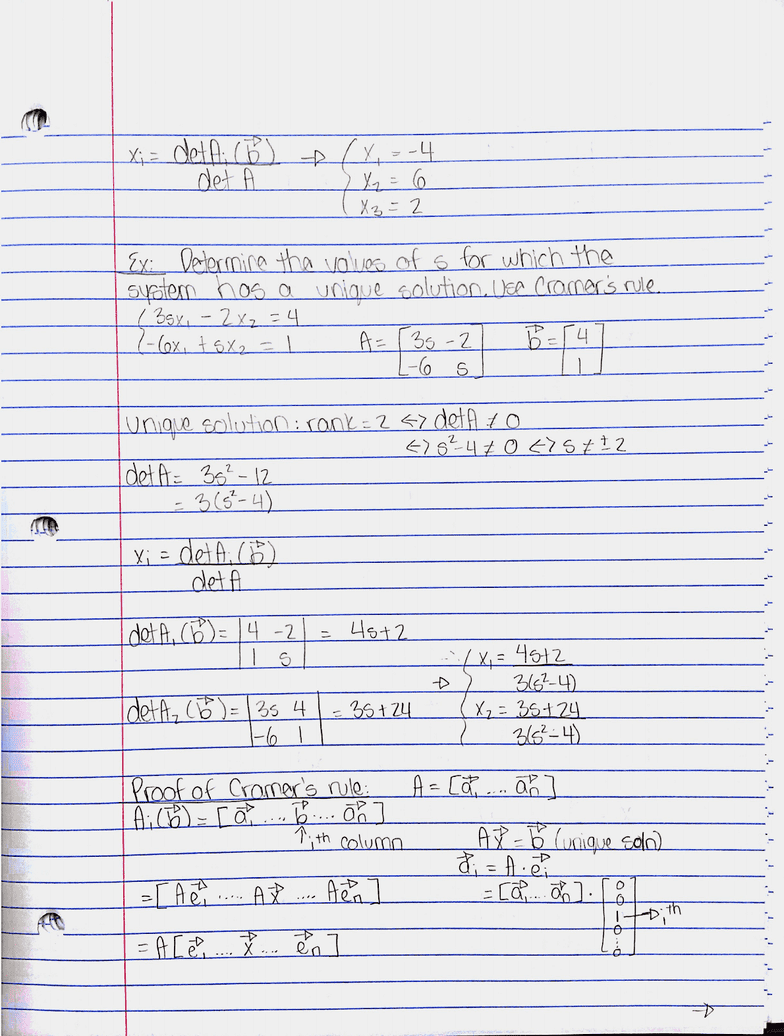 xᵢ = detAᵢ(b⃗) / det A → { x₁ = -4
x₂ = 6
x₃ = 2
Ex: Determine the values of s for which the
system has a unique solution. Use Cramer's rule.
{ 3sx₁ - 2x₂ = 4
{ -6x₁ + sx₂ = 1 A = [3s -2; -6 s] b⃗ = [4; 1]
Unique solution: rank = 2 <=> detA ≠ 0
<=> s² - 4 ≠ 0 <=> s ≠ ±2
detA = 3s² - 12
= 3(s² - 4)
xᵢ = detAᵢ(b⃗) / detA
detA₁(b⃗) = |4 -2; 1 s| = 4s+2
∴ → { x₁ = 4s+2 / 3(s²-4)
detA₂(b⃗) = |3s 4; -6 1| = 3s+24
x₂ = 3s+24 / 3(s²-4)
Proof of Cramer's rule: A = [a⃗₁ .... a⃗ₙ]
Aᵢ(b⃗) = [a⃗₁ .... b⃗ .... a⃗ₙ]
↑ iᵗʰ column Ax⃗ = b⃗ (unique soln)
a⃗ᵢ = A · e⃗ᵢ
= [Ae⃗₁ ..... Ax⃗ .... Ae⃗ₙ] = [a⃗₁ ... a⃗ₙ] · [0; 0; 1; 0; ⋮; 0] → iᵗʰ
= A[e⃗₁ .... x⃗ ... e⃗ₙ]
→